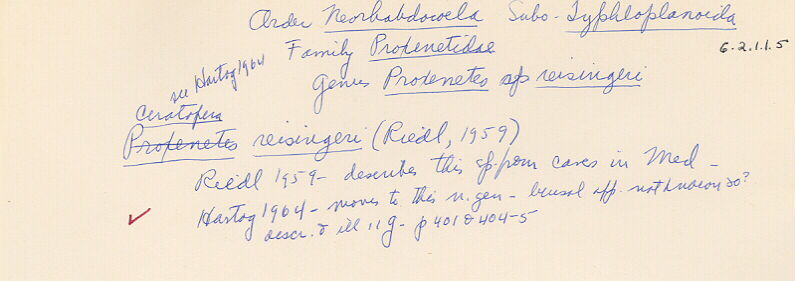 Order Neorhabdocoela Subo-Typhloplanoida
Family Proxenetidae 6.2.1.1.5
see Hartog 1964
Genus Proxenetes sp reisingeri
Ceratopera
Proxenetes reisingeri (Riedl, 1959)
Riedl 1959 - describes this sp. from caves in Med -
Hartog 1964 - moves to this n. gen - bursal app. not known so?
descr. & ill 11 g - p 401 & 404-5